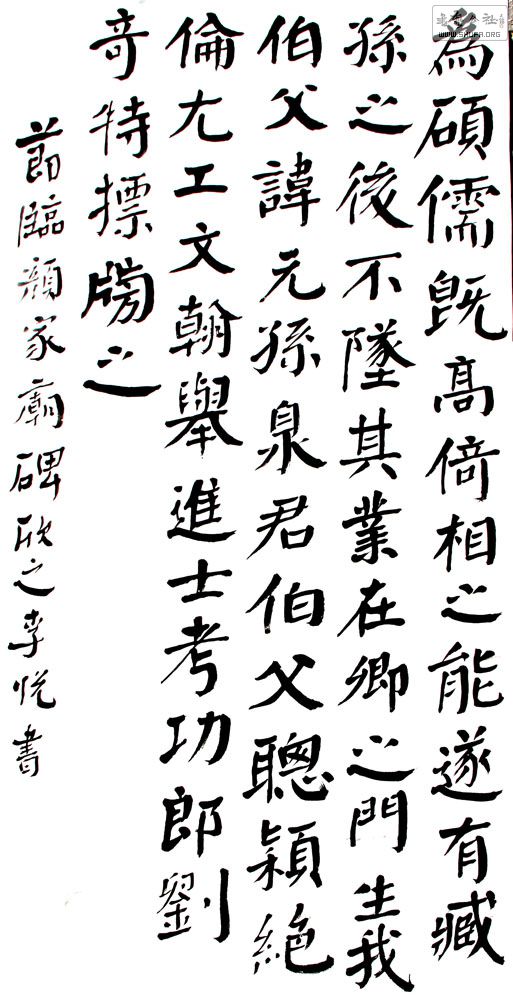 為碩儒既高倚相之能遂有臧
孫之後不墜其業在卿之門生我
伯父諱元孫泉君伯父聰穎絕
倫尤工文翰舉進士考功郎劉
奇特摽牓之
節臨顏家廟碑欣之李悅書
WWW.SHUFA.ORG